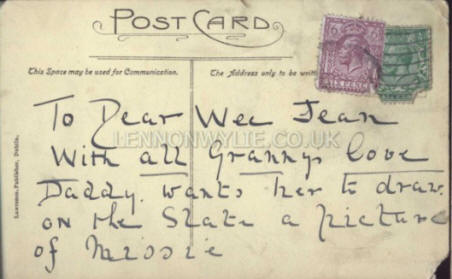 POST CARD
This Space may be used for Communication.
The Address only to be writt
Lawrence, Publisher, Dublin.
To Dear Wee Jean
LENNONWYLIE.CO.UK
With all Grannys love
Daddy. wants her to draw.
on the Slate a picture
of Missie